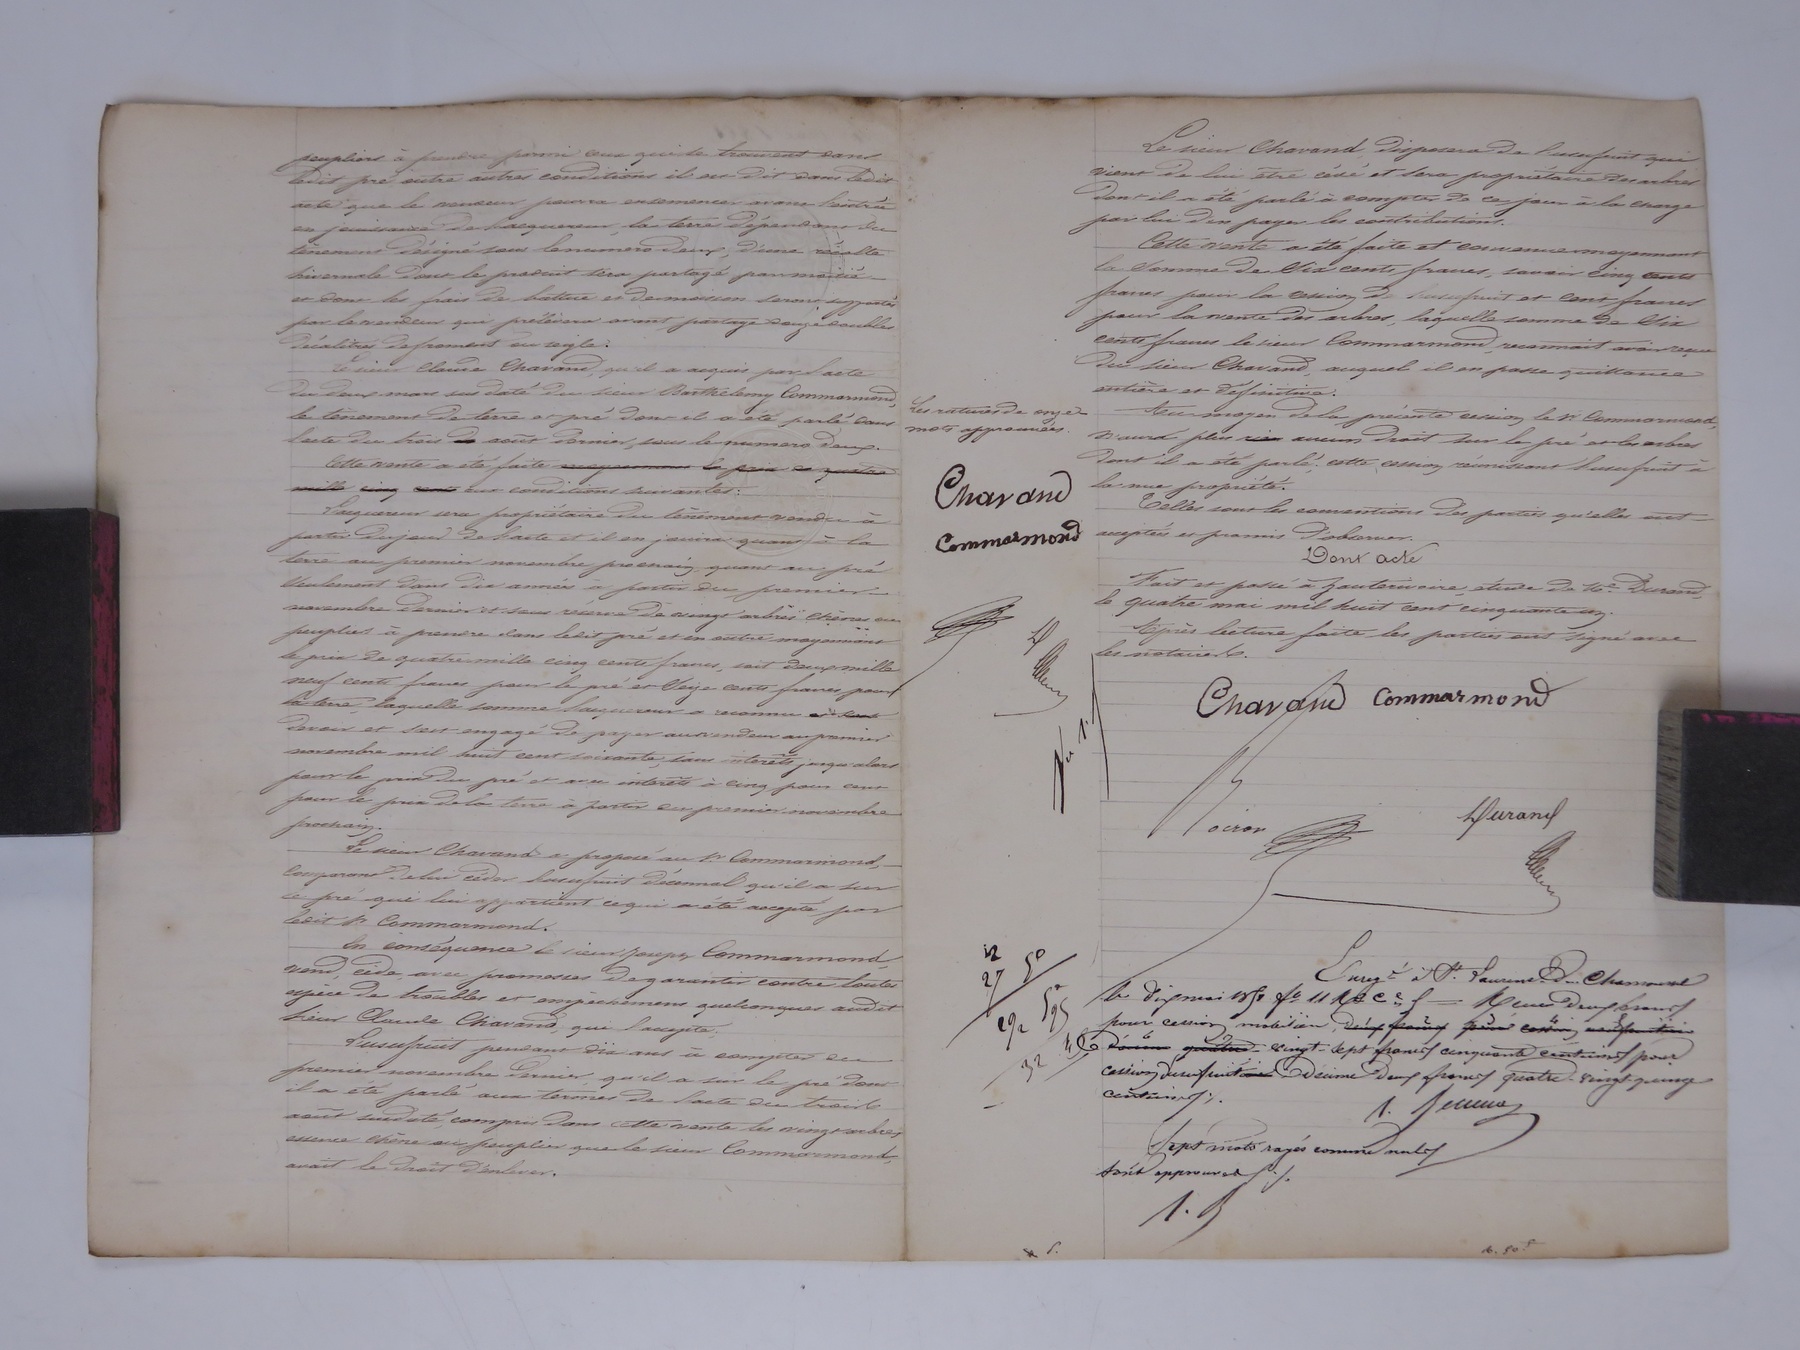 peupliers à prendre parmi ceux qui se trouvent dans
ledit pré entre autres conditions il est dit dans ledit
acte que le vendeur pourra ensemencer avant l'entrée
en jouissance de l'acquereur, la terre dépendant du
tènement désigné sous le numero deux, d'une récolte
hivernale dont le produit sera partagé par moitié
et dont les frais de batture et de moisson seront supportés
par le vendeur qui prélèvera avant partage douze doubles
décalitres de froment ou seigle.
Le sieur Claude Chavand, qu'il a acquis par l'acte
du deux mars sus daté du sieur Barthélemy Commarmond,
le tènement de terre et pré dont il a été parlé dans
l'acte du trois août dernier, sous le numero deux.
Cette vente a été faite moyennant le prix de quatre
mille cinq cent aux conditions suivantes:
L'acquereur sera propriétaire du tènement vendu à
partir du jour de l'acte et il en jouira quant à la
terre au premier novembre prochain, quant au pré
seulement dans dix années à partir du premier
novembre dernier et sous réserve de vingt arbres chênes ou
peupliers à prendre dans ledit pré et en outre moyennant
le prix de quatre mille cinq cents francs, soit deux mille
neuf cents francs pour le pré et seize cents francs pour
la terre, laquelle somme l'acquereur a reconnu
devoir et s'est engagé de payer au vendeur au premier
novembre mil huit cent soixante, sans intérêts jusqu'alors
pour le prix du pré et avec intérêts à cinq pour cent
pour le prix de la terre à partir du premier novembre
prochain.
Le sieur Chavand a proposé au Sr Commarmond,
comparant de lui céder l'usufruit décennal qu'il a sur
le pré qui lui appartient ce qui a été accepté par
ledit Sr Commarmond.
En conséquence le sieur Joseph Commarmond,
vend, cède, avec promesses de garantir contre toutes
espèce de troubles et empêchemens quelconques audit
sieur Claude Chavand, qui l'accepte,
L'usufruit pendant dix ans à compter du
premier novembre dernier, qu'il a sur le pré dont
il a été parlé aux termes de l'acte du trois
août susdaté, compris dans cette vente les vingt arbres
essence chêne ou peuplier que le sieur Commarmond,
avait le droit d'enlever.
Les ratures de onze
mots approuvées.
Chavand
Commarmond
Le sieur Chavand, disposera de l'usufruit qui
vient de lui être cédé et sera propriétaire des arbres
dont il a été parlé à compter de ce jour à la charge
par lui d'en payer les contributions.
Cette vente a été faite et convenue moyennant
la somme de six cents francs, savoir cinq cents
francs pour la cession de l'usufruit et cent francs
pour la vente des arbres, laquelle somme de six
cents francs le sieur Commarmond, reconnait avoir reçue
du sieur Chavand, auquel il en passe quittance
entière et définitive.
Au moyen de la présente cession le Sr Commarmond,
n'aura plus rien aucun droit sur le pré et les arbres
dont il a été parlé, cette cession réunissant l'usufruit à
la nue propriété.
Telles sont les conventions des parties qu'elles ont
acceptées et promis d'observer.
Dont acte
Fait et passé à Hauterivoire, étude de Me Durand,
le quatre mai mil huit cent cinquante
Après lecture faite les parties ont signé avec
les notaires.
Chavand Commarmond
Durand
12
27 50
292 595
32 45
Enregé à St Laurent de Chamousset
le dix mai
pour cession mobilière,
vingt-sept francs cinquante centimes pour
cession d'usufruit décime deux francs quatre-vingt-quinze
centimes
Sept mots rayés comme nuls
sont approuvés